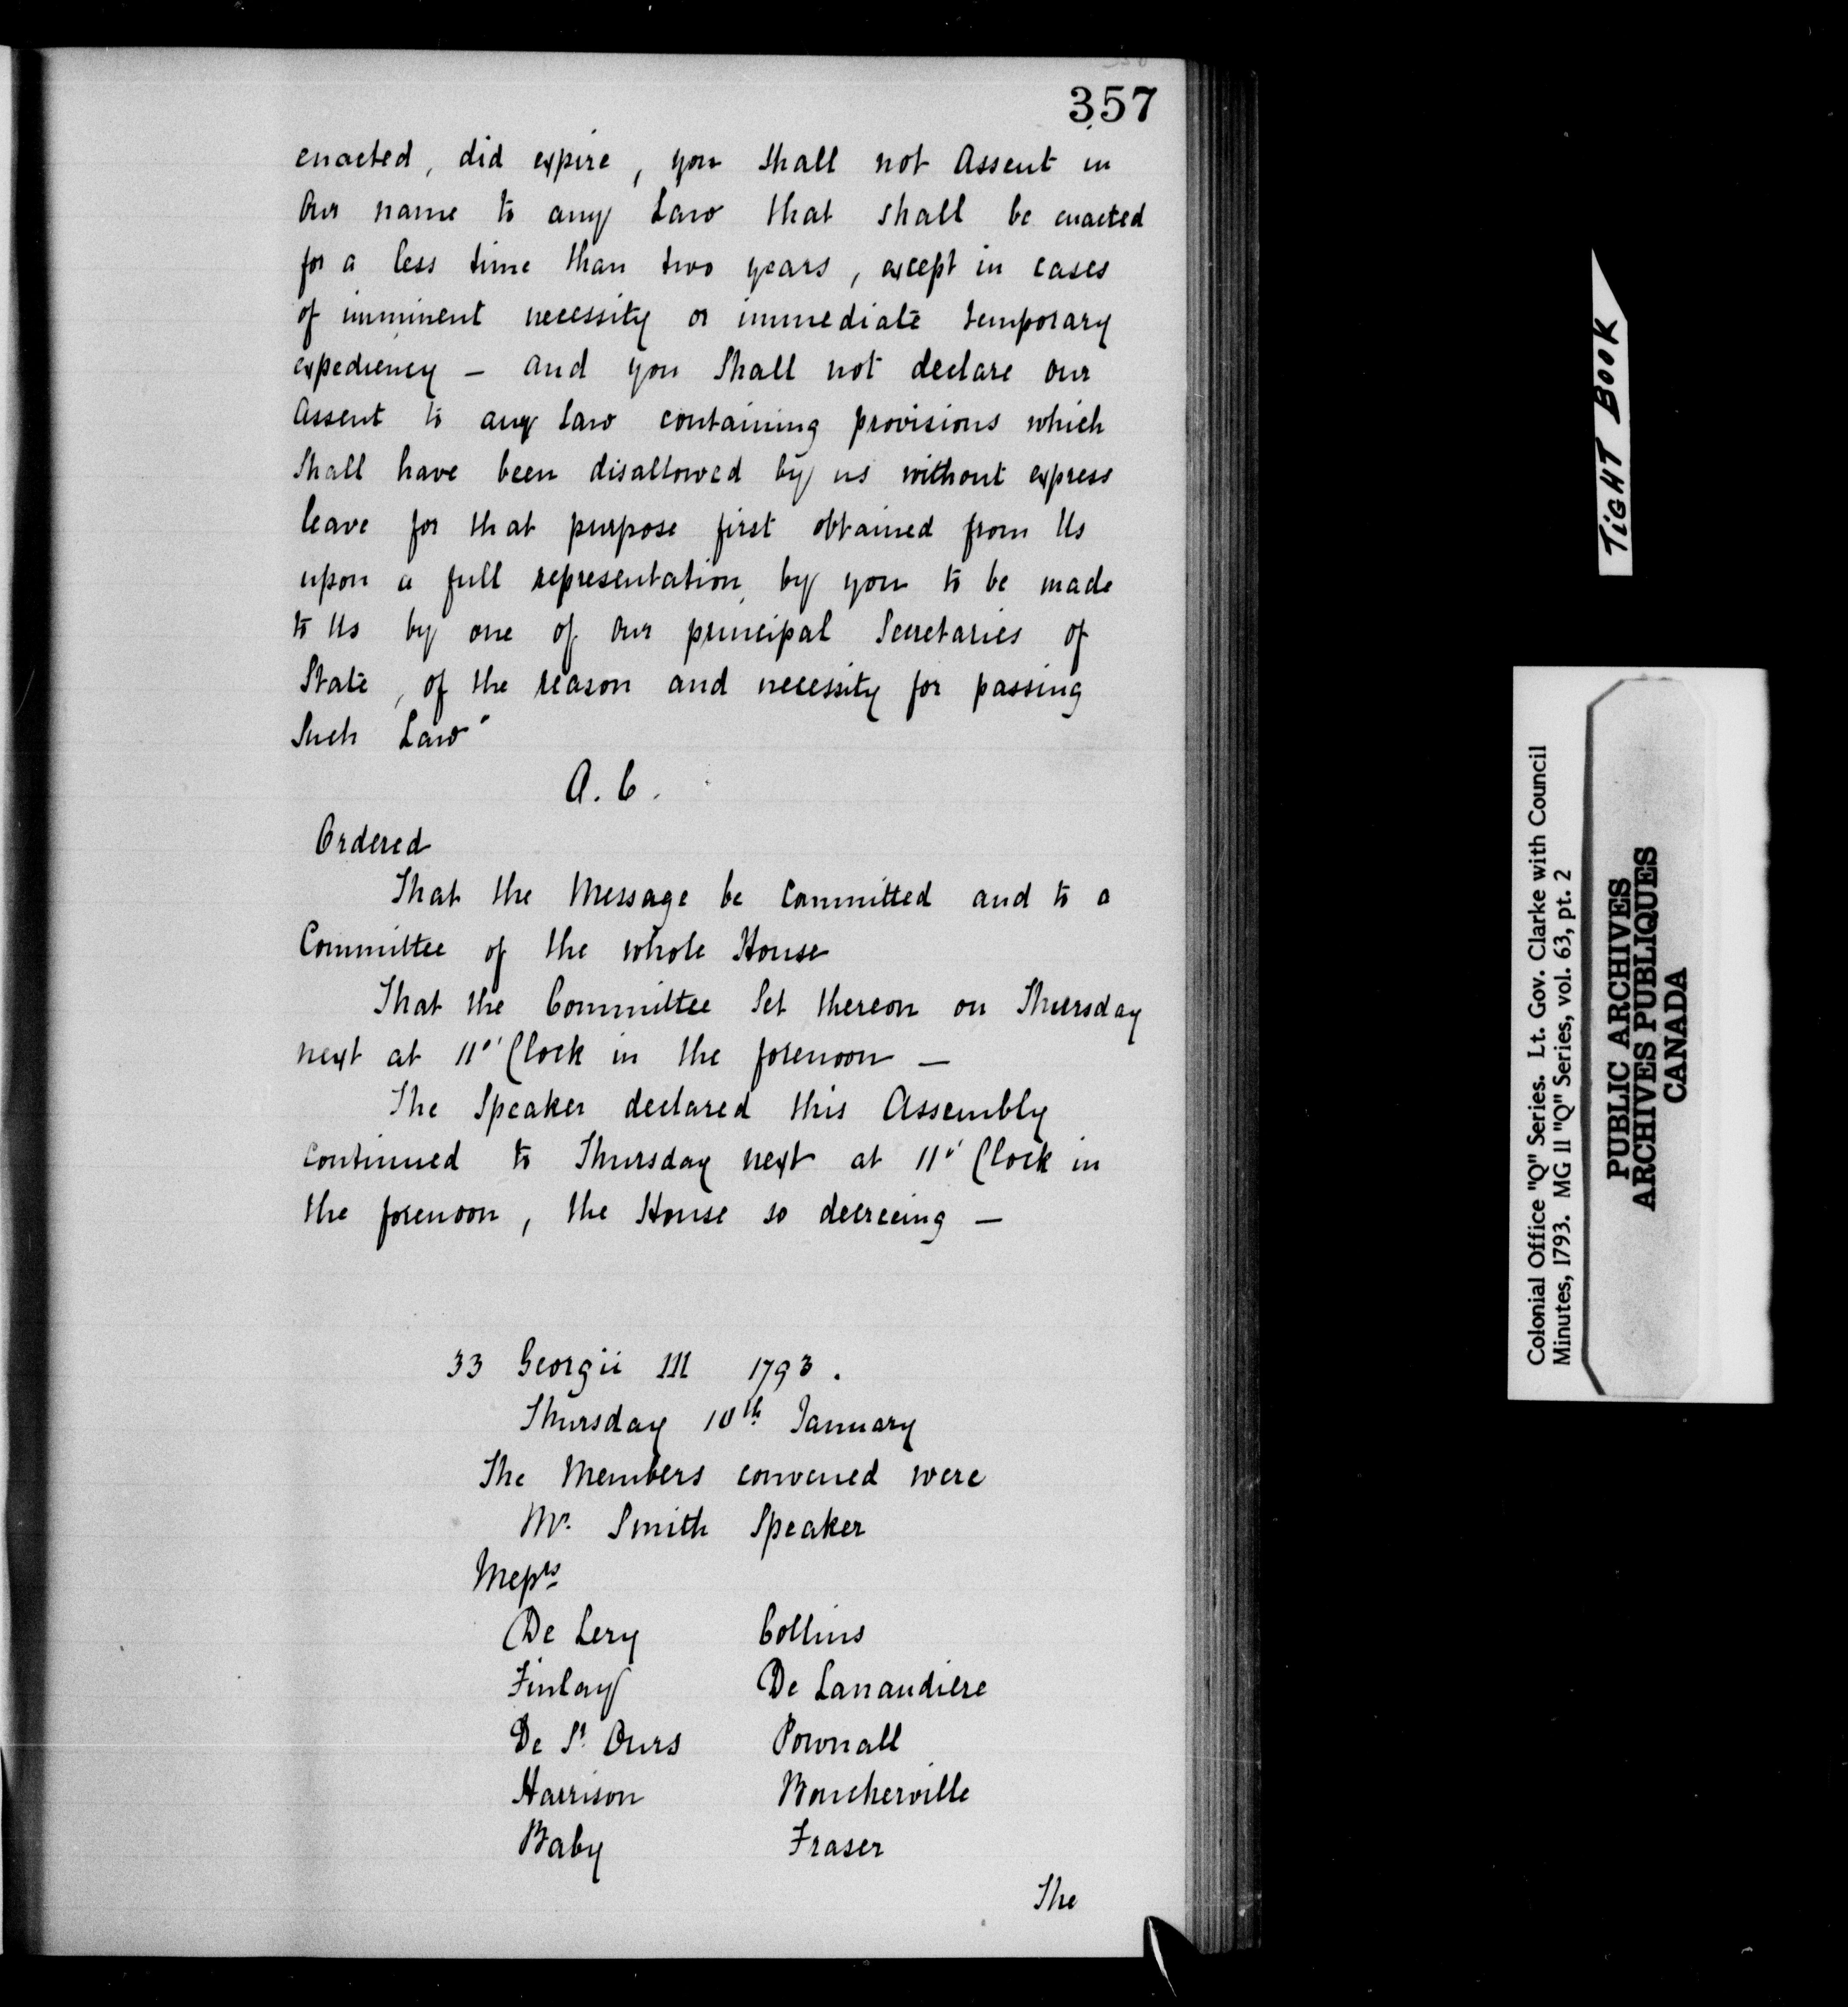 357
enacted, did expire, you shall not Assent in
Our name to any Law that shall be enacted
for a less time than two years, except in cases
of imminent necessity or immediate temporary
expediency - and you Shall not declare our
Assent to any Law containing provisions which
Shall have been disallowed by us without express
leave for that purpose first obtained from Us
upon a full representation, by you to be made
to Us by one of Our principal Secretaries of
State, of the reason and necessity for passing
Such Law"
A. C.
Ordered
That the Message be Committed and to a
Committee of the whole House
That the Committee Set thereon on Thursday
next at 11 o' Clock in the forenoon -
The Speaker declared this Assembly
continued to Thursday next at 11' Clock in
the forenoon, the House so decreeing -
33 Georgii III 1793.
Thursday 10th January
The Members convened were
Mr. Smith Speaker
Messrs
De Lery Collins
Finlay De Lanaudiere
De St. Ours Pownall
Harrison Boucherville
Baby Fraser
The
TIGHT BOOK
Colonial Office "Q" Series. Lt. Gov. Clarke with Council
Minutes, 1793. MG 11 "Q" Series, vol. 63, pt. 2
PUBLIC ARCHIVES
ARCHIVES PUBLIQUES
CANADA